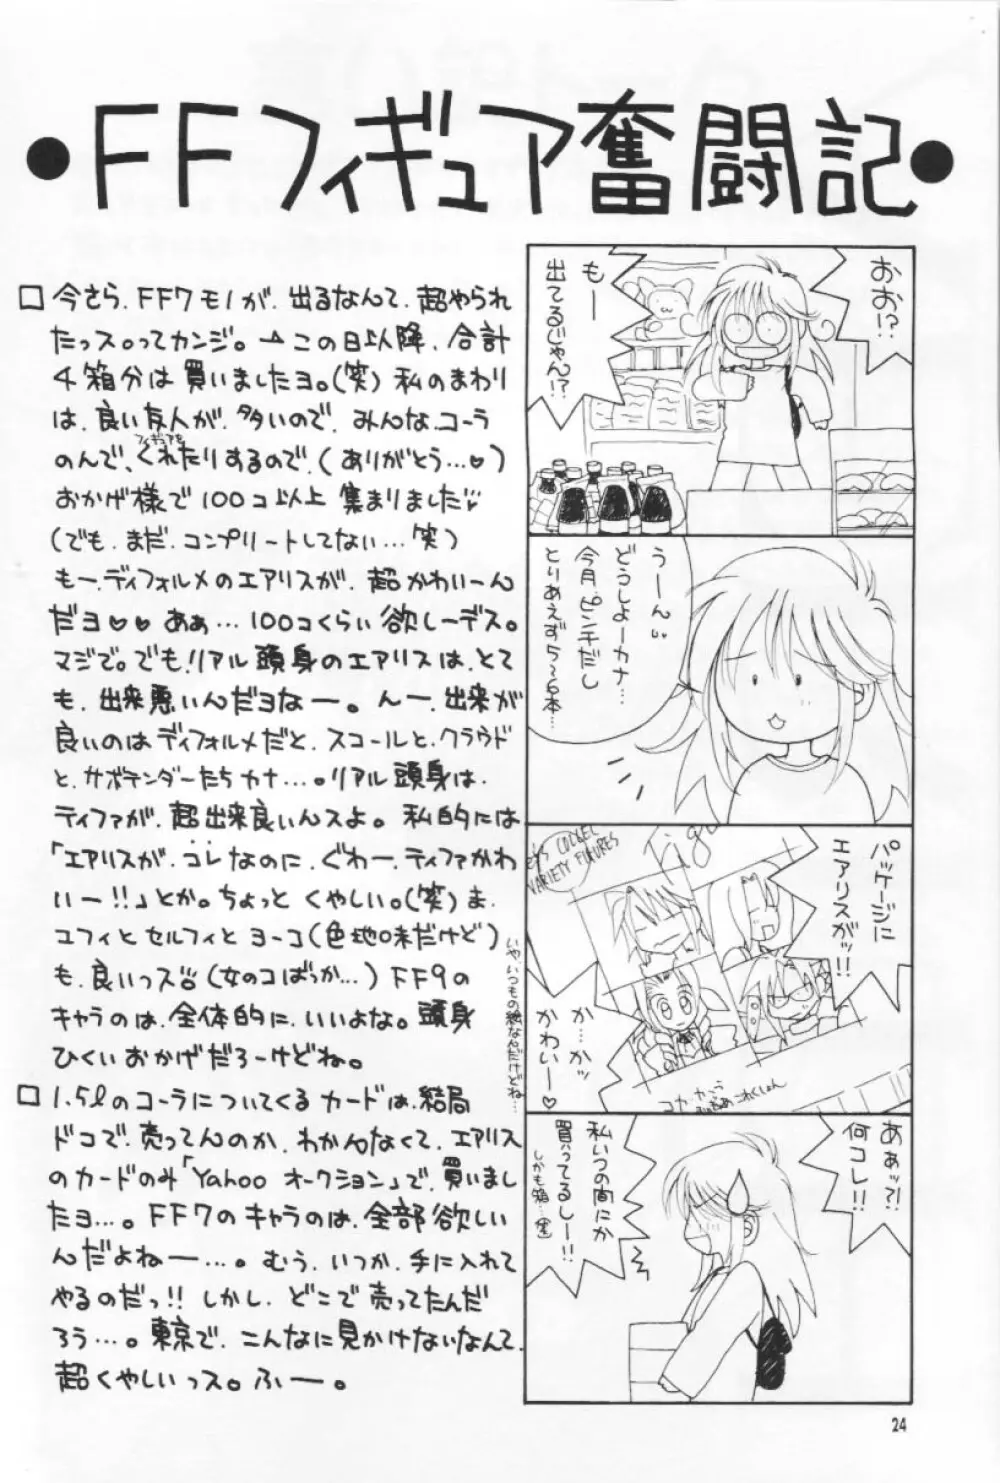 ・FFフィギュア奮闘記・
□今さら、FF7モノが、出るなんて、超やられ
たっス。ってカンジ。→この日以降、合計
4箱分は買いましたヨ。(笑)私のまわり
は、良い友人が、多いので、みんな、コーラ
のんで、フィギュアをくれたりするので、(ありがとう…♥)
おかげ様で100コ以上集まりました
(でも、まだ、コンプリートしてない…笑)
もー、ディフォルメのエアリスが、超かわいーん
だヨ♥♥ あぁ…100コくらい欲しーデス。
マジで。でも!リアル頭身のエアリスは、とて
も、出来悪いんだヨなー。んー、出来が
良いのはディフォルメだと、スコールと、クラウド
と、サボテンダーたちカナ…。リアル頭身は、
ティファが、超出来良いんスよ。私的には
「エアリスが、コレなのに、ぐわー、ティファかわ
いー!!」とか。ちょっとくやしい。(笑)ま、
ユフィとセルフィとヨーコ(色地味だけど)
も、良いっス(女のコばっか…)FF9の
キャラのは、全体的に、いいよな。頭身
ひくいおかげだろーけどね。
□1.5ℓのコーラについてくるカードは、結局
ドコで、売ってんのか、わかんなくて、エアリス
のカードのみ「Yahooオークション」で、買いまし
たヨ…。FF7のキャラのは、全部欲しい
んだよねー…。むぅ、いつか、手に入れて
やるのだっ!!しかし、どこで売ってたんだ
ろう…。東京で、こんなに見かけないなんて、
超くやしいっス。ふー。
おお!?
もー
出てるじゃん!?
うーん
どうしよーカナ…
今月、ピンチだし
とりあえず5〜6本…
パッケージに
エアリスがッ!!
VARIETY FIGURES
か…かッ
かわいー♥
いや、いつもの絵なんだけどね…
あぁッ?!
何コレ!!
私いつの間にか
買ってるしー!!
しかも箱…(笑)
24